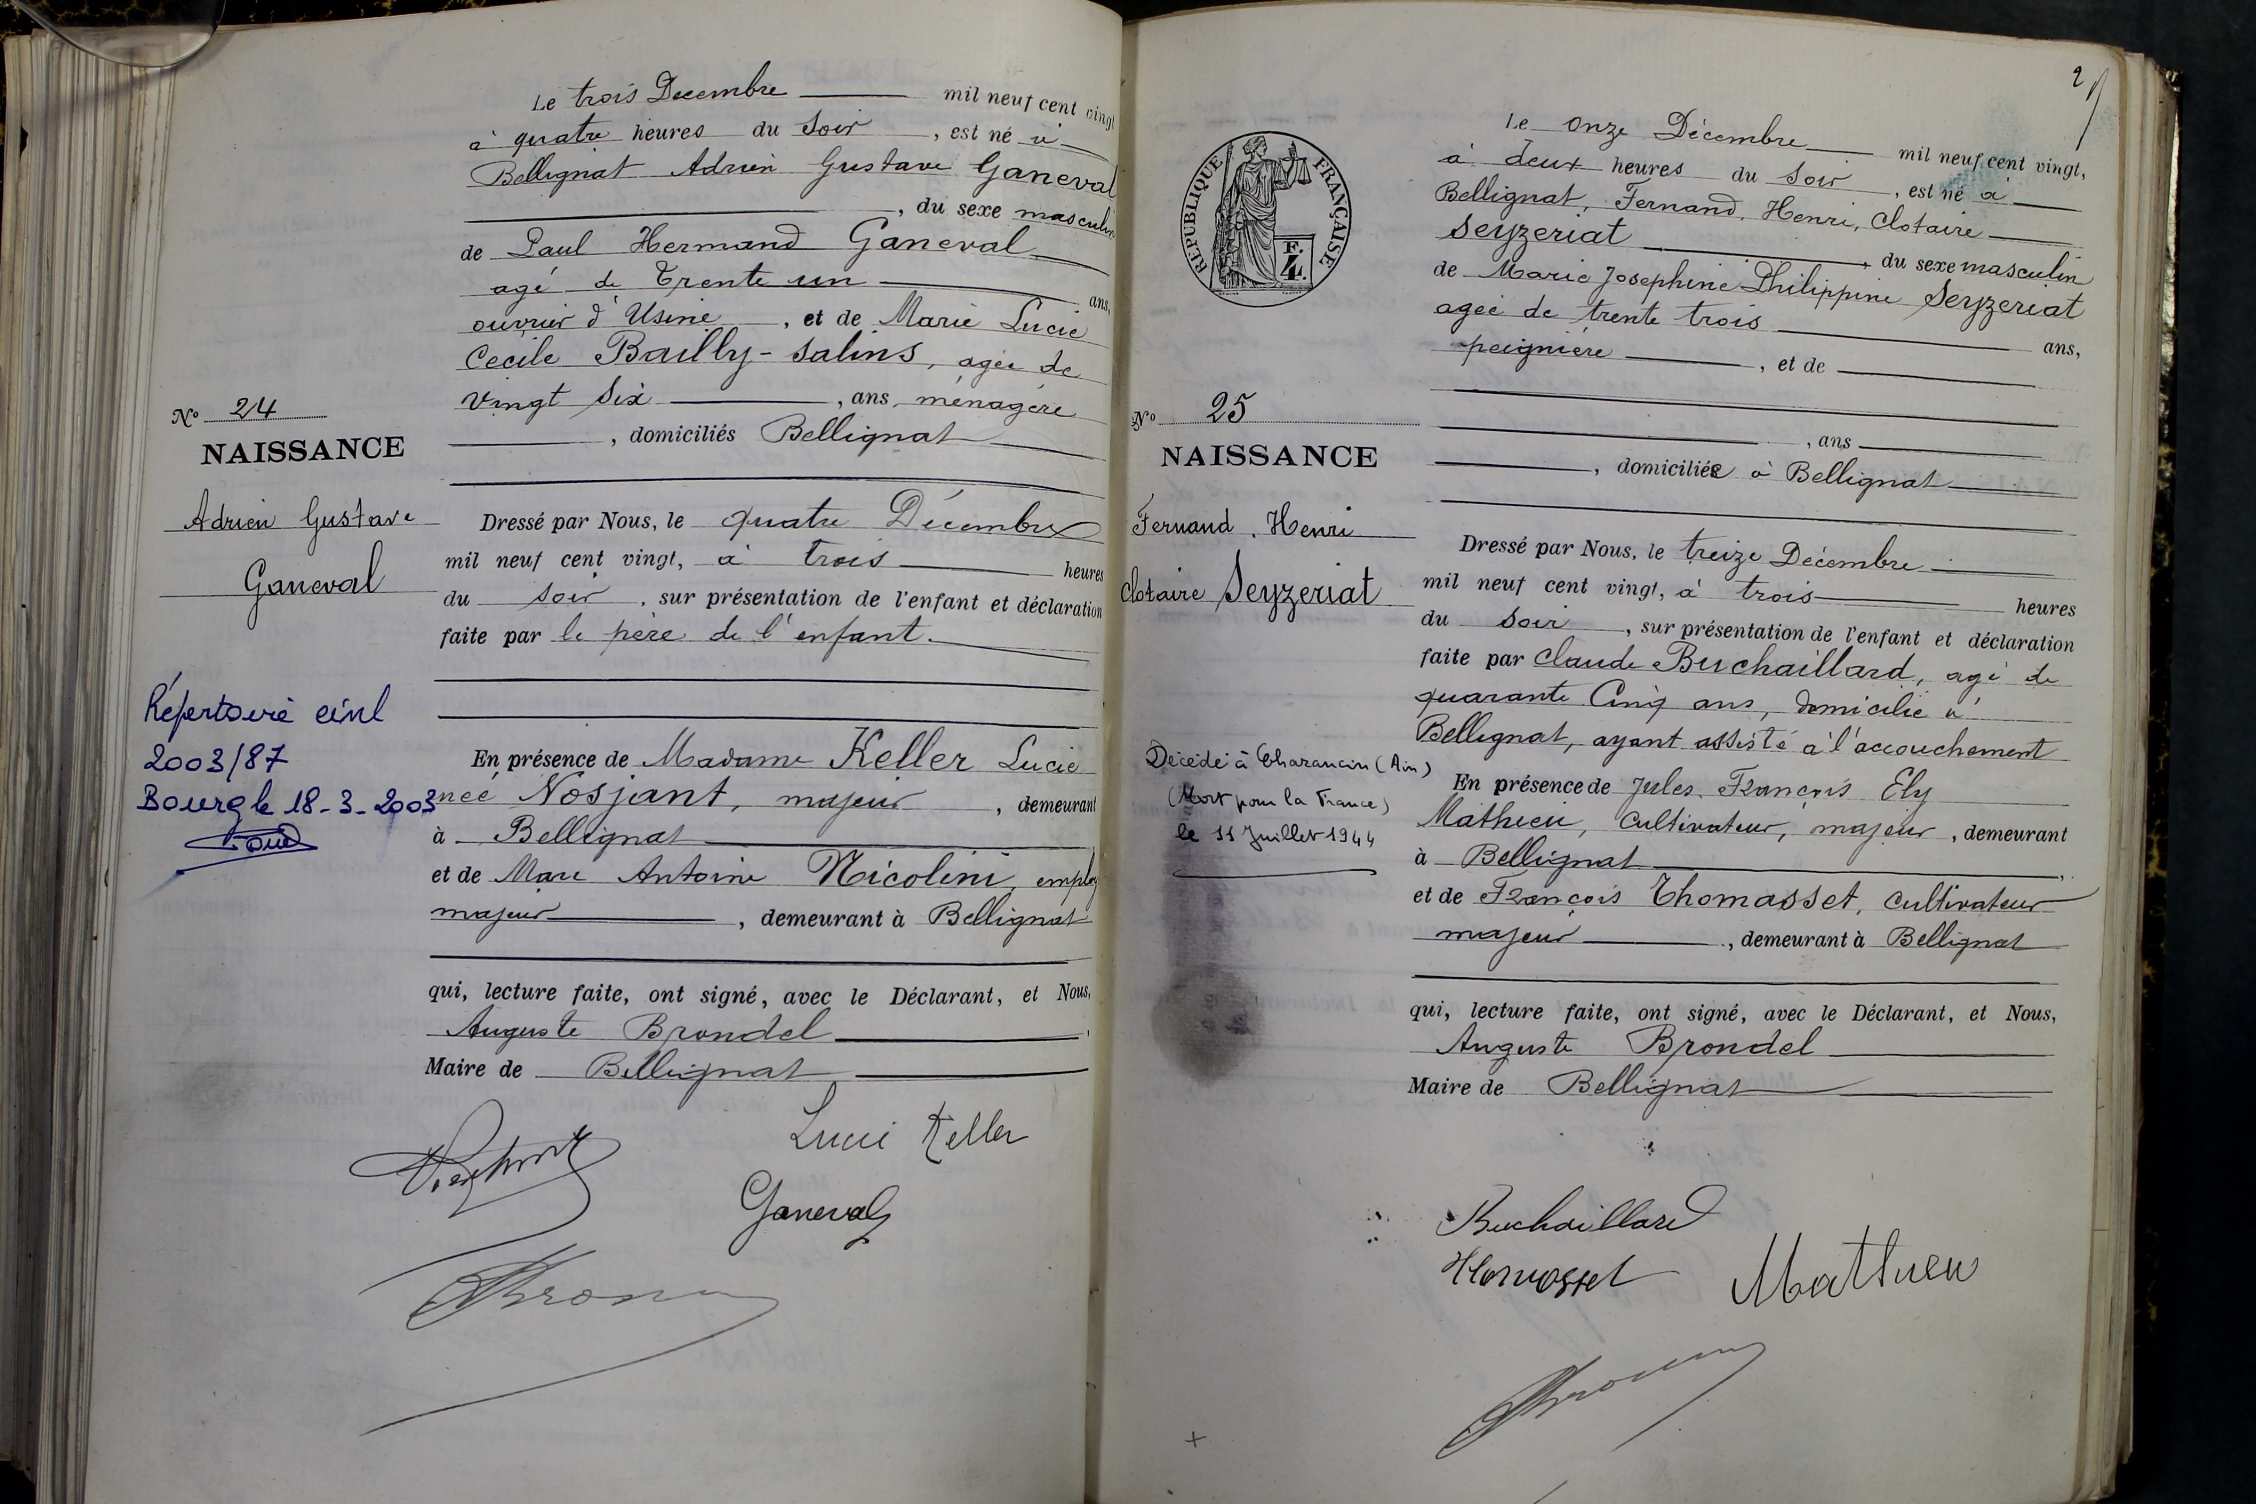 Le trois Decembre mil neuf cent vingt
à quatre heures du soir, est né à
Bellignat Adrien Gustave Ganeval
, du sexe masculin
de Paul Hermand Ganeval
agé de Trente un ans,
ouvrier d'Usine, et de Marie Lucie
Cecile Bailly-Salins, agée de
vingt six, ans, ménagère
, domiciliés Bellignat
No 24
NAISSANCE
Adrien Gustave
Ganeval
Dressé par Nous, le quatre Décembre
mil neuf cent vingt, à trois heures
du soir, sur présentation de l'enfant et déclaration
faite par le père de l'enfant.
Répertoire civil
2003/87
Bourg le 18-3-2003
En présence de Madame Keller Lucie
née Nosjant, majeur, demeurant
à Bellignat
et de Marc Antoine Nicolini, employ
majeur, demeurant à Bellignat
qui, lecture faite, ont signé, avec le Déclarant, et Nous,
Auguste Brondel,
Maire de Bellignat
Lucie Keller
Ganeval
2
RÉPUBLIQUE FRANÇAISE
F.
4.
Le onze Décembre mil neuf cent vingt,
à deux heures du soir, est né à
Bellignat, Fernand, Henri, Clotaire
Seyzeriat, du sexe masculin
de Marie Josephine Philippine Seyzeriat
agée de trente trois ans,
peignière, et de
, ans
, domiciliée à Bellignat
No 25
NAISSANCE
Fernand, Henri
Clotaire Seyzeriat
Dressé par Nous, le treize Décembre
mil neuf cent vingt, à trois heures
du soir, sur présentation de l'enfant et déclaration
faite par Claude Buchaillard, agé de
quarante Cinq ans, domicilié à
Bellignat, ayant assisté à l'accouchement
Décédé à Charancin (Ain)
(Mort pour la France)
le 11 Juillet 1944
En présence de Jules François Ely
Mathieu, Cultivateur, majeur, demeurant
à Bellignat,
et de François Thomasset, Cultivateur
majeur, demeurant à Bellignat
qui, lecture faite, ont signé, avec le Déclarant, et Nous,
Auguste Brondel
Maire de Bellignat
Buchaillard
Thomasset
Mathieu